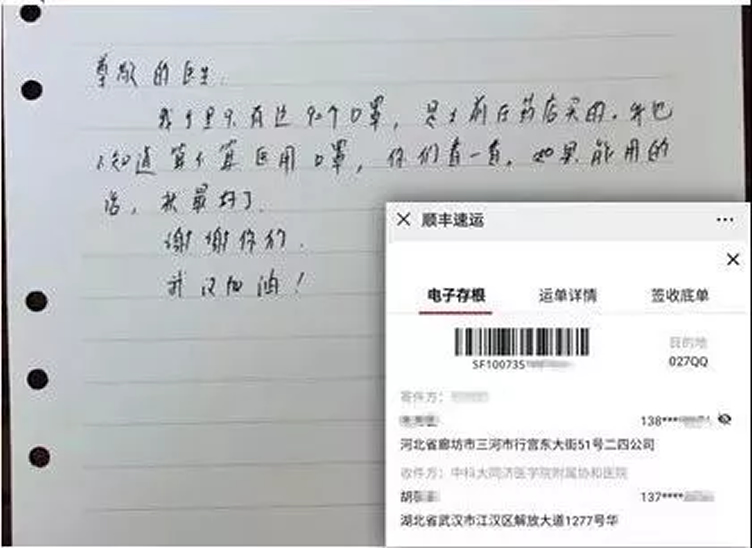 尊敬的医生
我手里只有这90个口罩，是之前在药店买的。我也
不知道算不算医用口罩，你们看一看。如果能用的
话，就最好了。
谢谢你们.
武汉加油！
顺丰速运
电子存根
运单详情
签收底单
SF100735
目的地
027QQ
寄件方：
138***
河北省廊坊市三河市行宫东大街51号二四公司
收件方：中科大同济医学院附属协和医院
胡
137****
湖北省武汉市江汉区解放大道1277号华